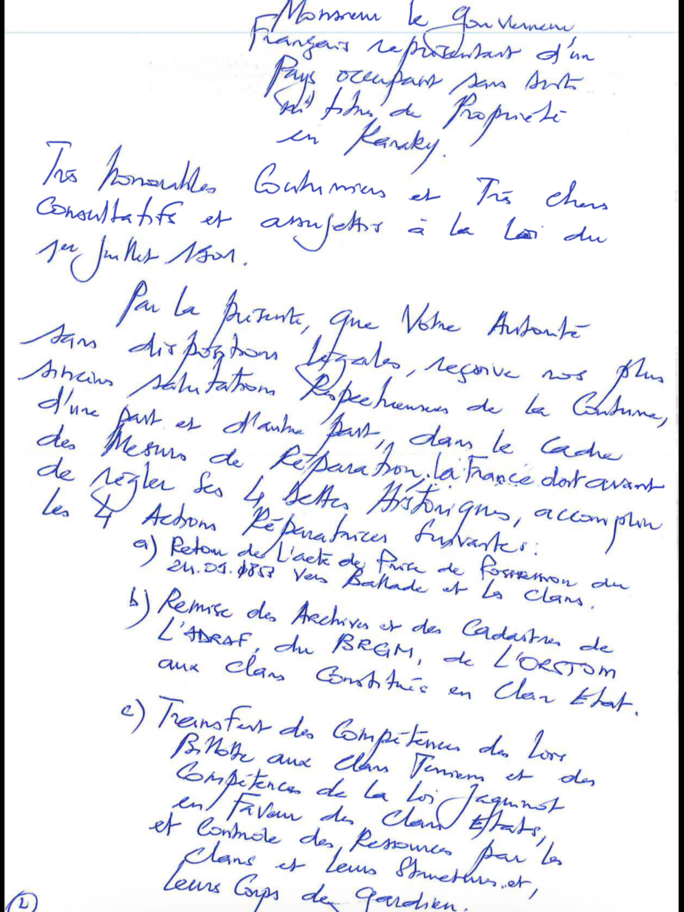 Monsieur le Gouverneur
Français représentant d'un
Pays occupant sans
titres de Propriété
en Kanaky.
Très honorables Coutumiers et Très chers
Consultatifs et assujettis à la Loi du
1er Juillet 1901.
Par la présente, que Votre Autorité
sans dispositions légales, reçoive nos plus
sincères salutations Respectueuses de la Coutume,
d'une part et d'autre part, dans le cadre
des Mesures de Réparation, la France doit avant
de régler ses 4 dettes Historiques, accomplir
les 4 Actions Réparatrices Suivantes :
a) Retour de L'acte de Prise de Possession du
24.09.1853 vers Ballade et les Clans.
b) Remise des Archives et des Cadastres de
L'ADRAF, du BRGM, de L'ORSTOM
aux clans Constitués en Clan Etat.
c) Transfert des Compétences des Lois
Billotte aux Clans Terriens et des
Compétences de la Loi Jaquinot
en Faveur des Clans Etats,
et Contrôle des Ressources par les
Clans et leurs Structures et,
leurs Corps de gardien.